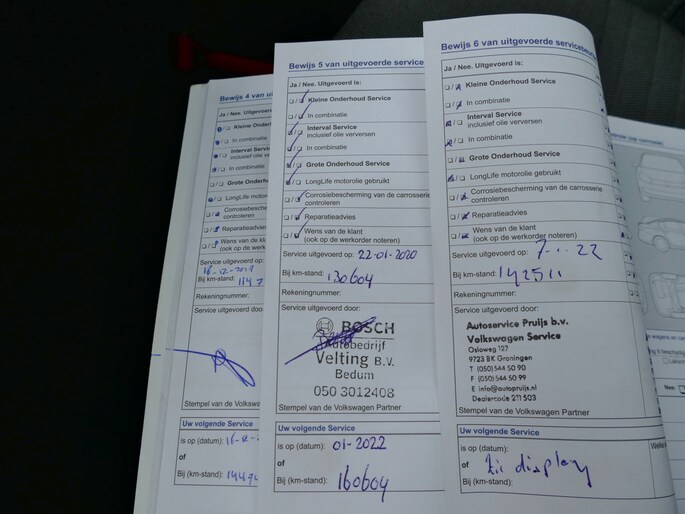 Bewijs 4 van uit
Ja / Nee. Uitgevoerd
Kleine Onderho
In combinatie
Interval Service
inclusief olie ververs
In combinatie
Grote Onderho
LongLife motorolie
Corrosiebescherming
controleren
Reparatieadvies
Wens van de klant
(ook op de werkord
Service uitgevoerd op:
Bij km-stand:
Rekeningnummer:
Service uitgevoerd door:
Stempel van de Volkswa
Uw volgende Service
is op (datum): 16-12-
of
Bij (km-stand):
Bewijs 5 van uitgevoerde service
Ja / Nee. Uitgevoerd is:
Kleine Onderhoud Service
In combinatie
Interval Service
inclusief olie verversen
In combinatie
Grote Onderhoud Service
LongLife motorolie gebruikt
Corrosiebescherming van de carrosserie
controleren
Reparatieadvies
Wens van de klant
(ook op de werkorder noteren)
Service uitgevoerd op: 22-01-2020
Bij km-stand: 130604
Rekeningnummer:
Service uitgevoerd door:
BOSCH
Autobedrijf
Velting B.V.
Bedum
050 3012408
Stempel van de Volkswagen Partner
Uw volgende Service
is op (datum): 01-2022
of
Bij (km-stand): 160604
Bewijs 6 van uitgevoerde servicebeur
Ja / Nee. Uitgevoerd is:
Kleine Onderhoud Service
In combinatie
Interval Service
inclusief olie verversen
In combinatie
Grote Onderhoud Service
LongLife motorolie gebruikt
Corrosiebescherming van de carrosserie
controleren
Reparatieadvies
Wens van de klant
(ook op de werkorder noteren)
Service uitgevoerd op:
Bij km-stand: 142511
Rekeningnummer:
Service uitgevoerd door:
Autoservice Pruijs b.v.
Volkswagen Service
Osloweg 127
9723 BK Groningen
T (050) 544 50 90
F (050) 544 50 99
E info@autopruijs.nl
Dealercode 211 503
Stempel van de Volkswagen Partner
Uw volgende Service
is op (datum):
of zie display
Bij (km-stand):
Nee: